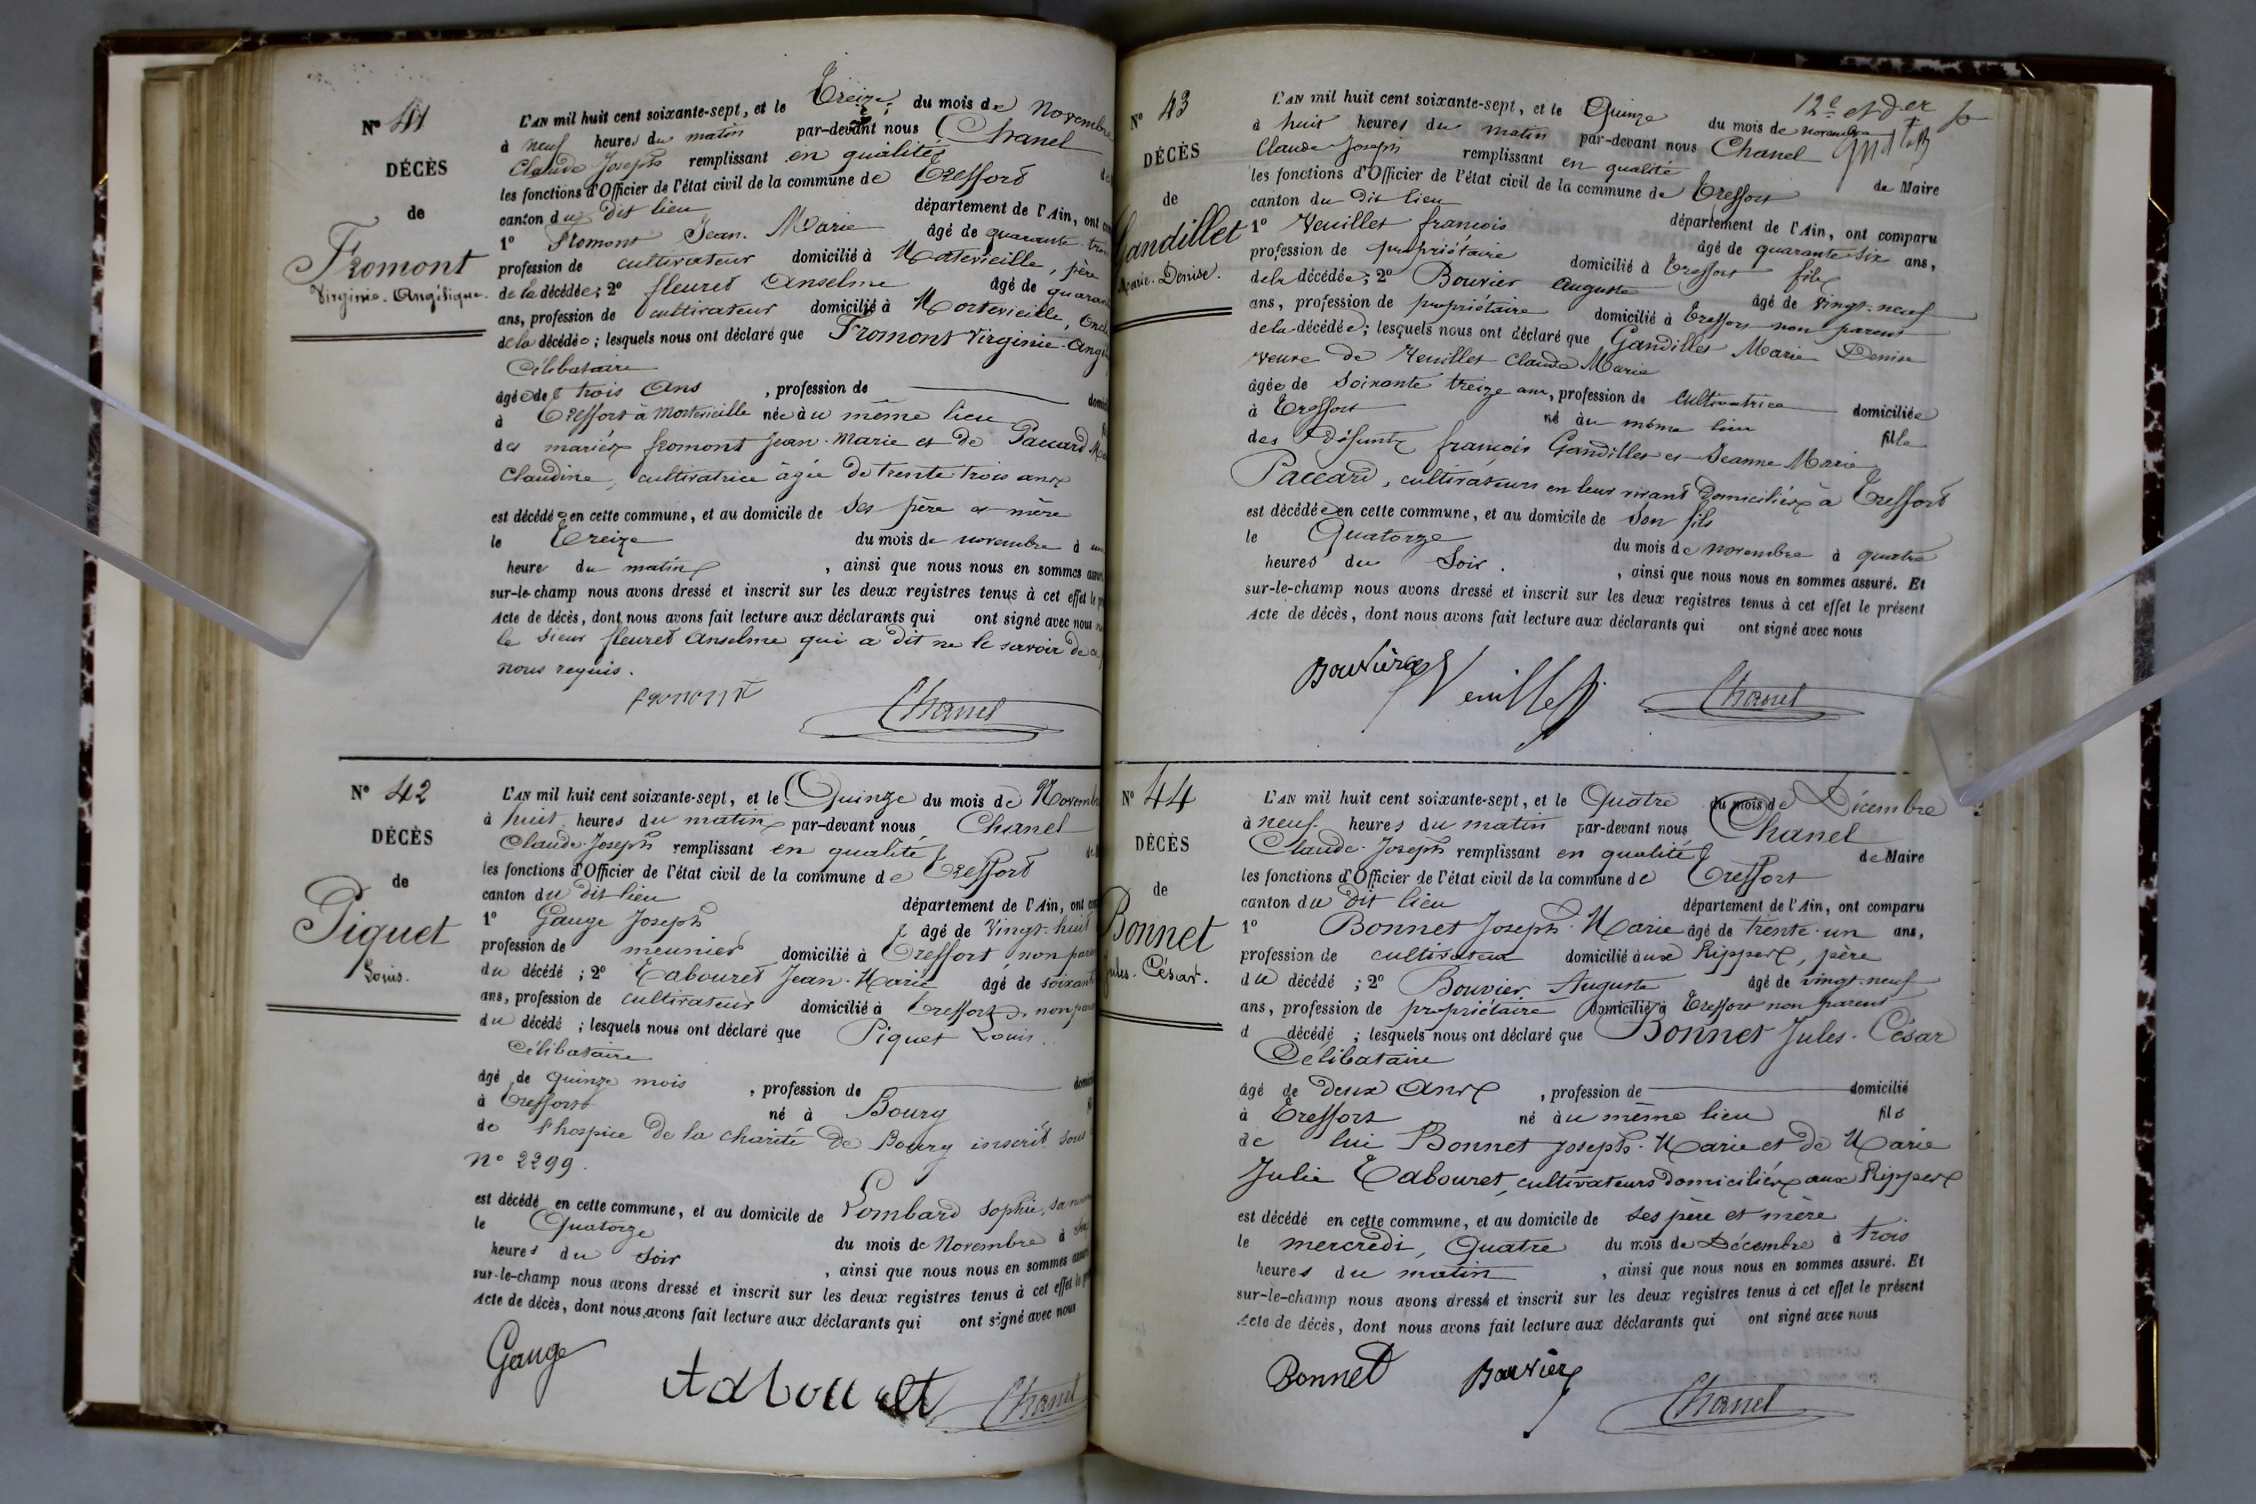 N° 41
DÉCÈS
de
Fromont
Virginie. Angélique.
L'AN mil huit cent soixante-sept, et le Treize du mois de Novembre
à neuf heures du matin par-devant nous Chanel
Claude Joseph remplissant en qualité
les fonctions d'Officier de l'état civil de la commune de Treffort
canton du dit lieu département de l'Ain, ont
1° Fromont Jean. Marie âgé de quarante
profession de cultivateur domicilié à Mortevieille, père
de la décédée; 2° fleuret Anselme âgé de
ans, profession de cultivateur domicilié à Mortevieille,
de la décédée; lesquels nous ont déclaré que Fromont Virginie-
Célibataire
âgée de trois Ans, profession de
à Treffort à Mortevieille née au même lieu
des mariés fromont Jean-Marie et de Paccard
Claudine, cultivatrice âgée de trente trois ans
est décédée en cette commune, et au domicile de ses père et mère
le Treize du mois de novembre à
heure du matin, ainsi que nous nous en sommes
sur-le-champ nous avons dressé et inscrit sur les deux registres tenus à cet effet le
Acte de décès, dont nous avons fait lecture aux déclarants qui ont signé avec nous
le sieur fleuret Anselme qui a dit ne le savoir de
nous requis.
fromont Chanel
N° 42
DÉCÈS
de
Piquet
Louis.
L'AN mil huit cent soixante-sept, et le Quinze du mois de
à huit heures du matin par-devant nous Chanel
Claude-Joseph remplissant en qualité
les fonctions d'Officier de l'état civil de la commune de Treffort
canton du dit lieu département de l'Ain, ont
1° Gauge Joseph âgé de vingt-huit
profession de meunier domicilié à Treffort non
du décédé; 2° Tabouret Jean-Marie âgé de
ans, profession de cultivateur domicilié à Treffort non
du décédé; lesquels nous ont déclaré que Piquet Louis.
Célibataire
âgé de quinze mois, profession de
à Treffort né à Bourg
de l'hospice de la charité de Bourg inscrit sous
N° 2299.
est décédé en cette commune, et au domicile de Lombard Sophie, sa
le Quatorze du mois de Novembre à
heures du soir, ainsi que nous nous en sommes
sur-le-champ nous avons dressé et inscrit sur les deux registres tenus à cet effet le
Acte de décès, dont nous avons fait lecture aux déclarants qui ont signé avec nous
Gauge Chanel
12e et der
N° 43
DÉCÈS
de
Gandillet
Marie. Denise.
L'AN mil huit cent soixante-sept, et le Quinze du mois de novembre
à huit heures du matin par-devant nous Chanel
Claude Joseph remplissant en qualité de Maire
les fonctions d'Officier de l'état civil de la commune de Treffort
canton du dit lieu département de l'Ain, ont comparu
1° Veuillet françois âgé de quarante six ans,
profession de propriétaire domicilié à Treffort fils
de la décédée; 2° Bouvier Auguste âgé de vingt-neuf
ans, profession de propriétaire domicilié à Treffort non parent
de la décédée; lesquels nous ont déclaré que Gandillet Marie Denise
veuve de Veuillet Claude Marie
âgée de soixante treize ans, profession de cultivatrice domiciliée
à Treffort né au même lieu fille
des défunts françois Gandillet et Jeanne Marie
Paccard, cultivateurs en leur vivant domiciliés à Treffort
est décédée en cette commune, et au domicile de son fils
le Quatorze du mois de novembre à quatre
heures du Soir., ainsi que nous nous en sommes assuré. Et
sur-le-champ nous avons dressé et inscrit sur les deux registres tenus à cet effet le présent
Acte de décès, dont nous avons fait lecture aux déclarants qui ont signé avec nous
Bouvier Veuillet Chanel
N° 44
DÉCÈS
de
Bonnet
Jules. César.
L'AN mil huit cent soixante-sept, et le Quatre du mois de Décembre
à neuf heures du matin par-devant nous Chanel
Claude-Joseph remplissant en qualité de Maire
les fonctions d'Officier de l'état civil de la commune de Treffort
canton du dit lieu département de l'Ain, ont comparu
1° Bonnet Joseph-Marie âgé de trente-un ans,
profession de cultivateur domicilié aux Rippes, père
du décédé; 2° Bouvier Auguste âgé de vingt-neuf
ans, profession de propriétaire domicilié à Treffort non parent
d décédé; lesquels nous ont déclaré que Bonnet Jules-César
Célibataire
âgé de deux Ans, profession de domicilié
à Treffort né au même lieu fils
de lui Bonnet Joseph-Marie et de Marie
Julie Tabouret, cultivateurs domiciliés aux Rippes
est décédé en cette commune, et au domicile de ses père et mère
le mercredi, Quatre du mois de Décembre à trois
heures du matin, ainsi que nous nous en sommes assuré. Et
sur-le-champ nous avons dressé et inscrit sur les deux registres tenus à cet effet le présent
Acte de décès, dont nous avons fait lecture aux déclarants qui ont signé avec nous
Bonnet Bouvier Chanel